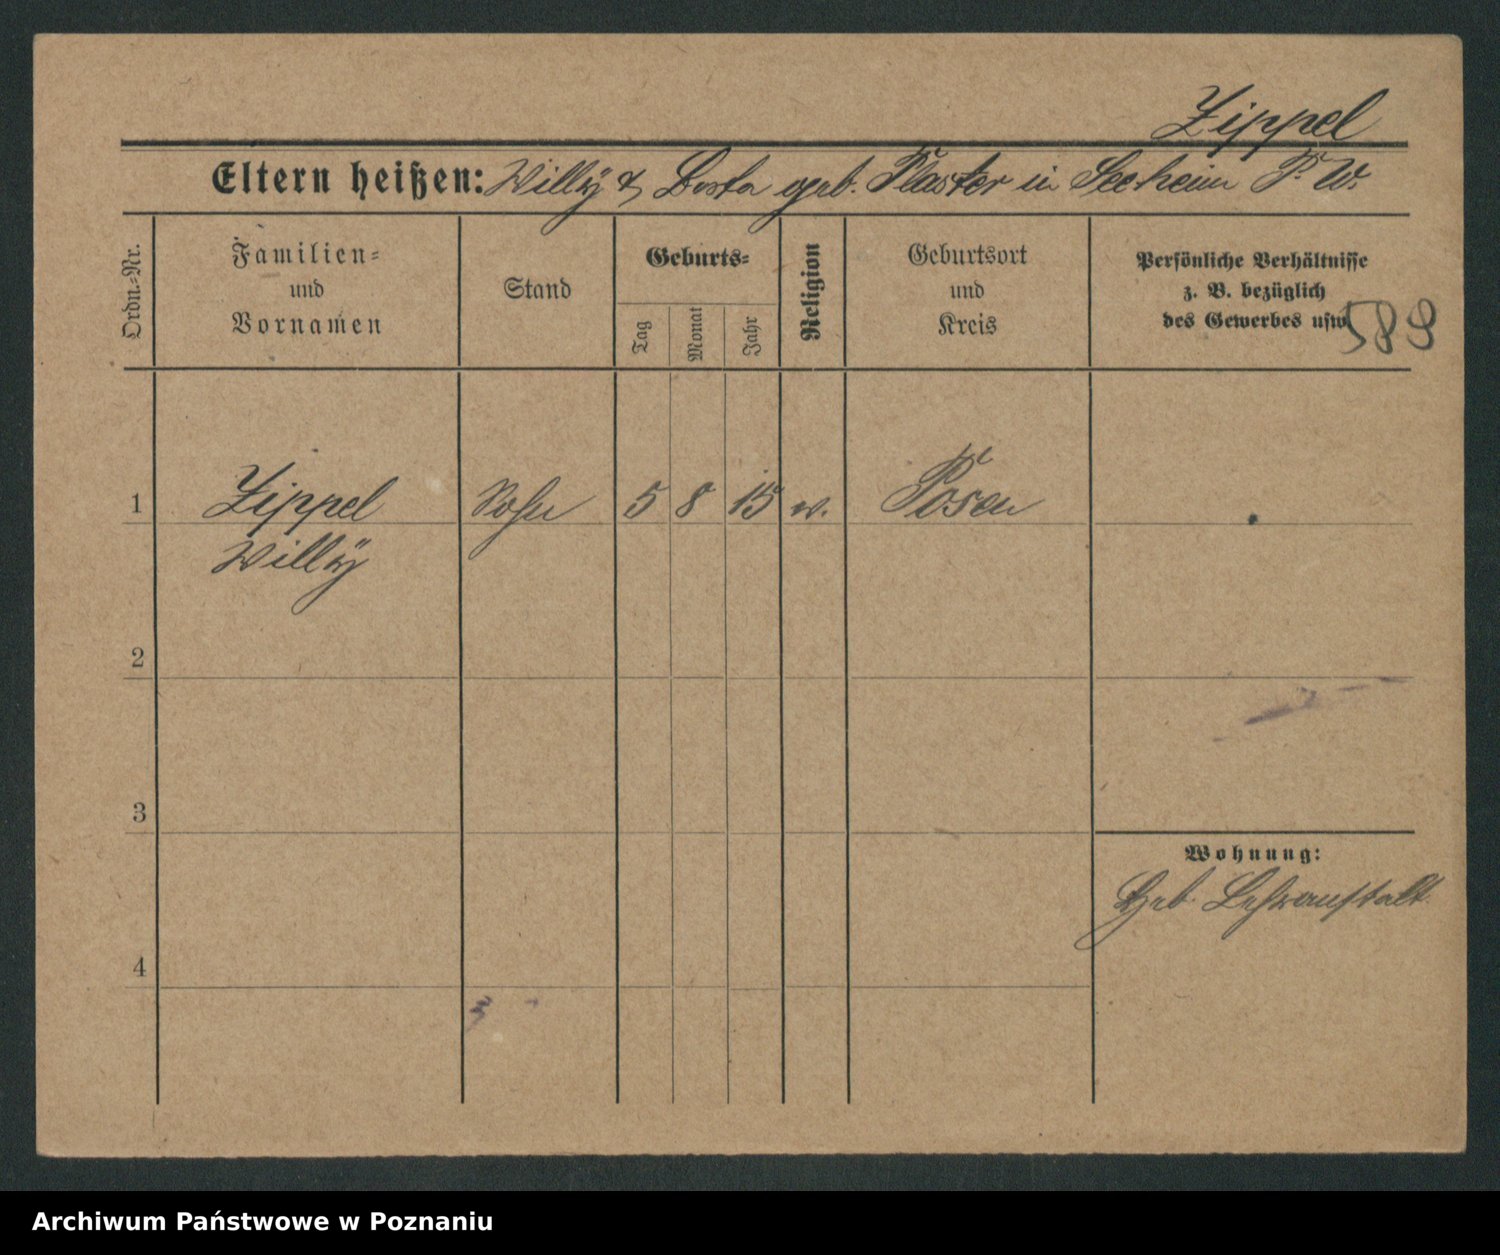 Zippel
Eltern heißen: Willÿ & geb. Plaster in Seeheim P. W.
Ordn.=Nr.
Familien=
und
Vornamen
Stand
Geburts=
Tag
Monat
Jahr
Religion
Geburtsort
und
Kreis
Persönliche Verhältnisse
z. B. bezüglich
des Gewerbes usw.
589
1 Zippel Sohn 5 8 15 Posen
Willÿ
2
3
4
Wohnung:
Heb. Lehranstalt
Archiwum Państwowe w Poznaniu